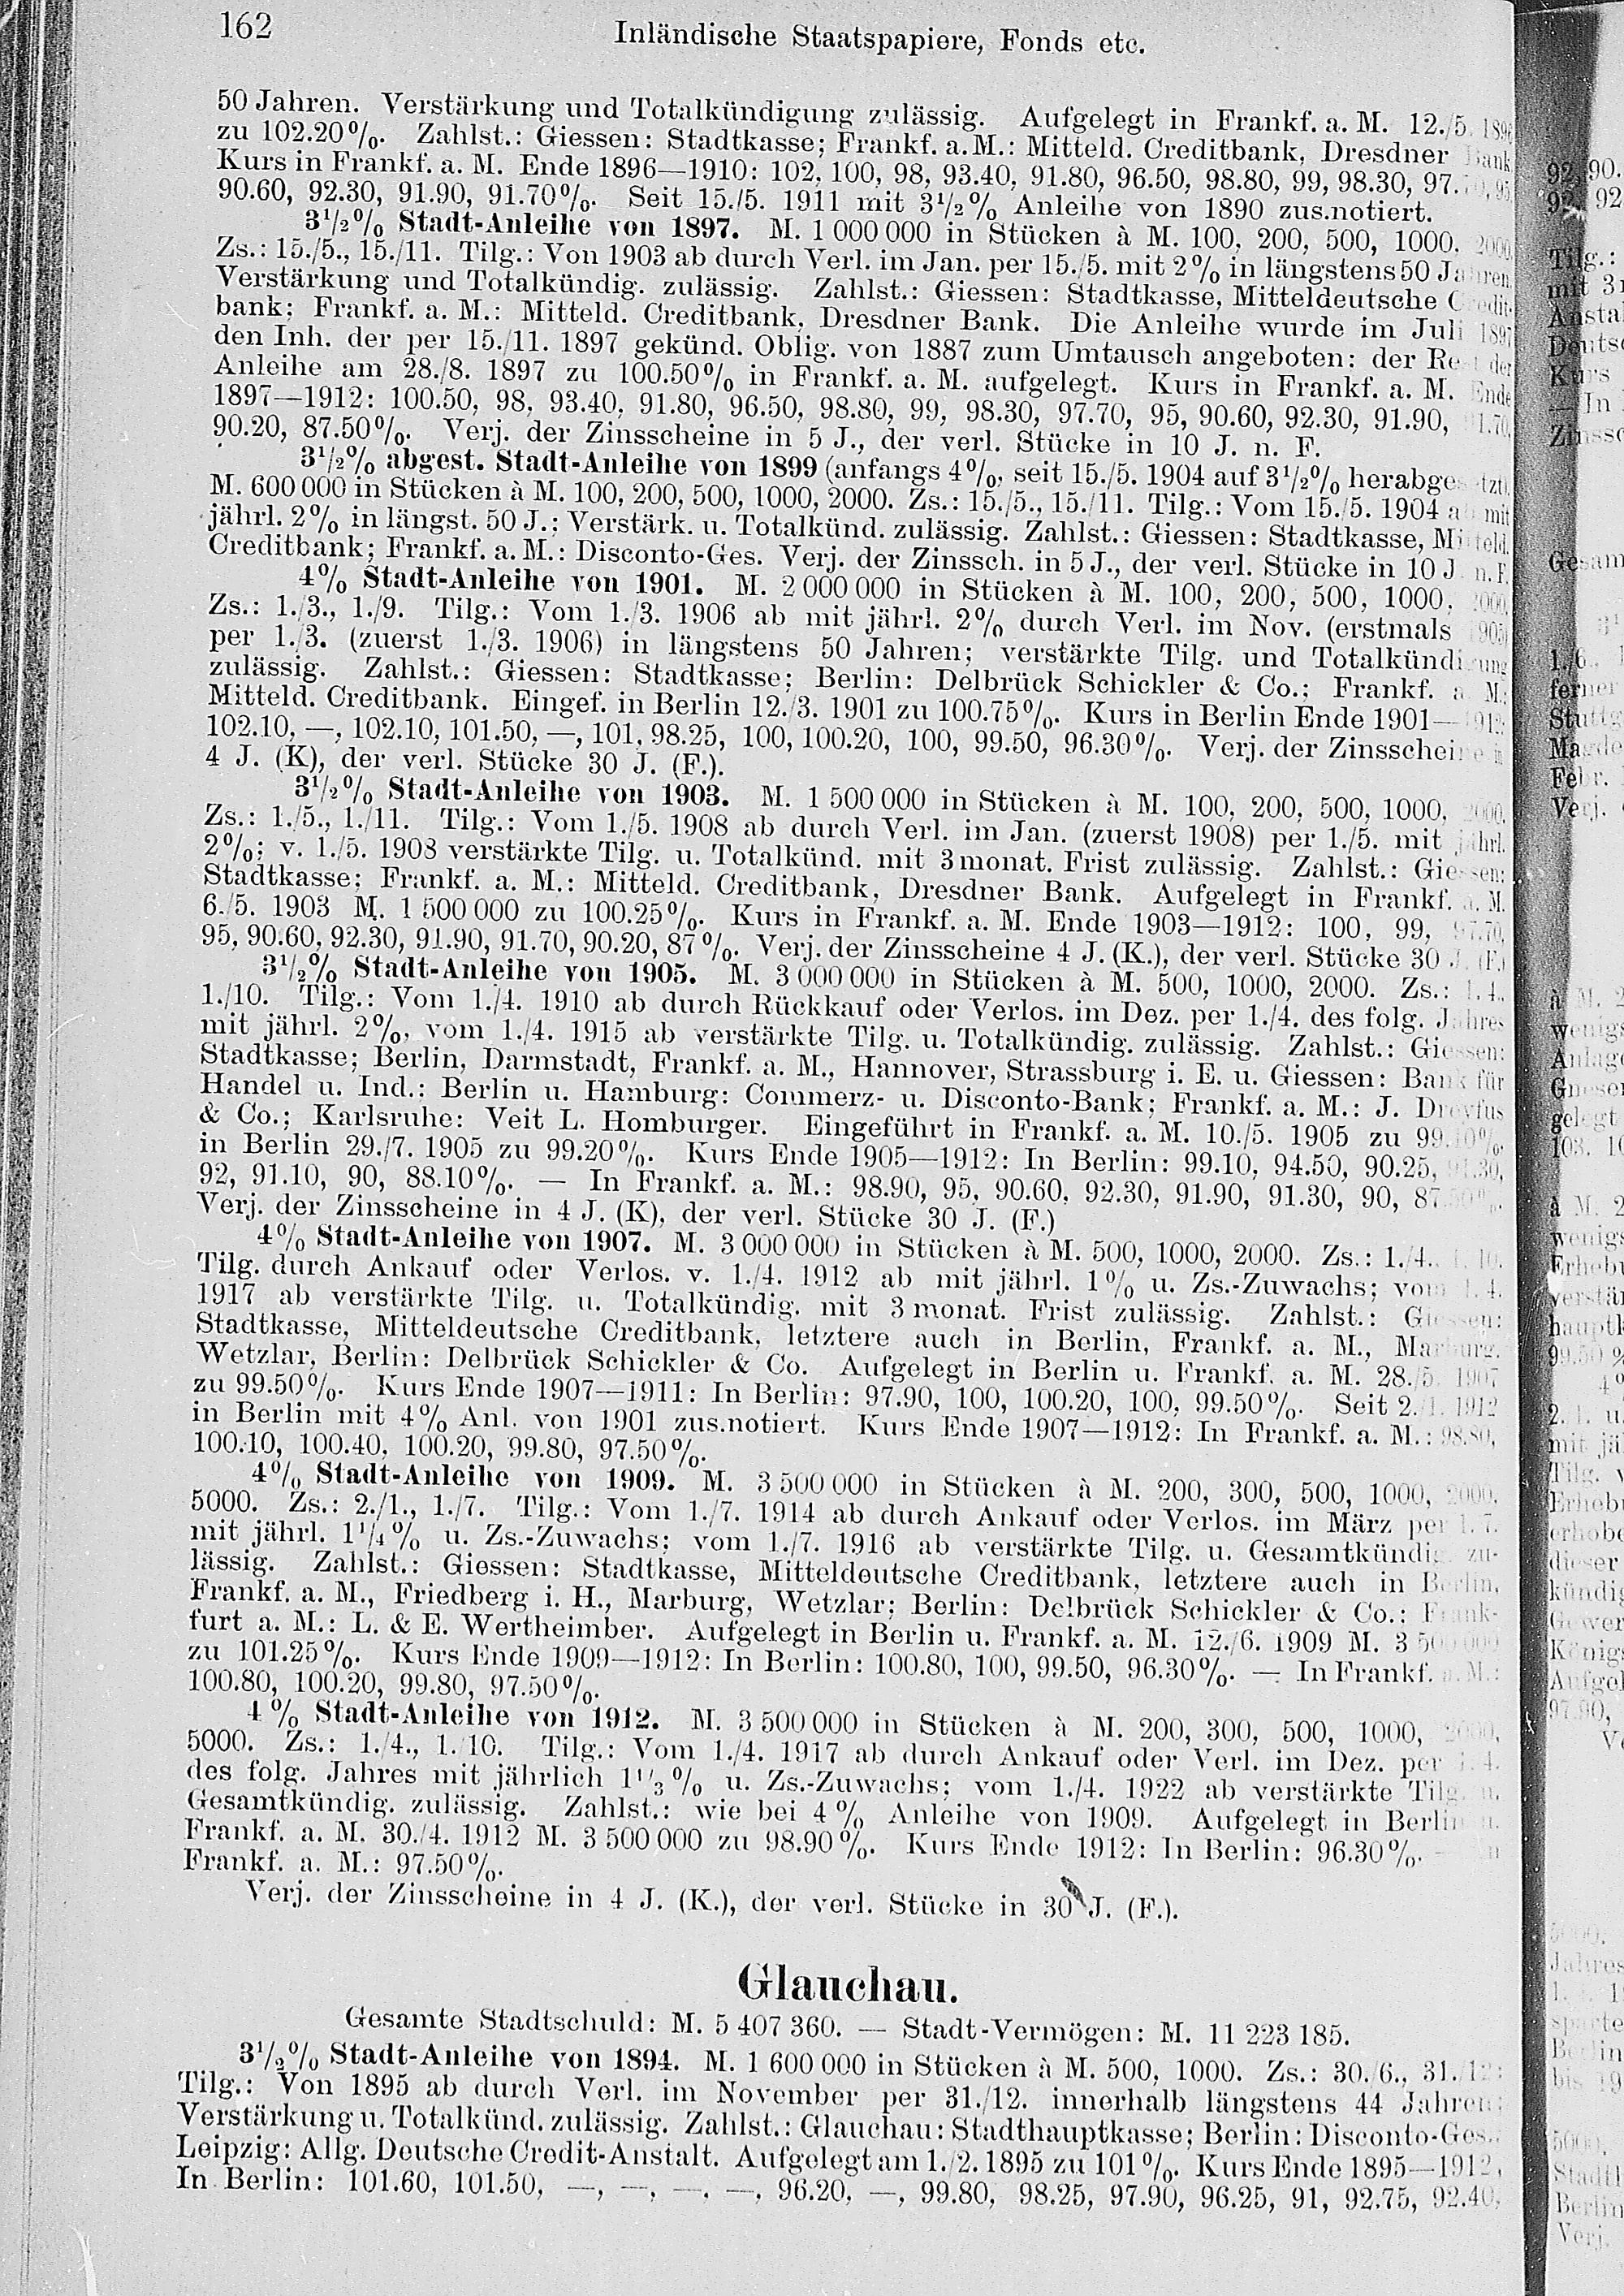 162
Inländische Staatspapiere, Fonds etc.
50 Jahren. Verstärkung und Totalkündigung zulässig. Aufgelegt in Frankf. a. M. 12./5. 1896
zu 102.20%. Zahlst.: Giessen: Stadtkasse; Frankf. a. M.: Mitteld. Creditbank, Dresdner Bank
Kurs in Frankf. a. M. Ende 1896—1910: 102, 100, 98, 93.40, 91.80, 96.50, 98.80, 99, 98.30, 97.70, 95,
90.60, 92.30, 91.90, 91.70%. Seit 15./5. 1911 mit 3½% Anleihe von 1890 zus.notiert.
3½% Stadt-Anleihe von 1897. M. 1 000 000 in Stücken à M. 100, 200, 500, 1000, 2000,
Zs.: 15./5., 15./11. Tilg.: Von 1903 ab durch Verl. im Jan. per 15./5. mit 2% in längstens 50 Jahren,
Verstärkung und Totalkündig. zulässig. Zahlst.: Giessen: Stadtkasse, Mitteldeutsche Credit-
bank; Frankf. a. M.: Mitteld. Creditbank, Dresdner Bank. Die Anleihe wurde im Juli 1897
den Inh. der per 15./11. 1897 gekünd. Oblig. von 1887 zum Umtausch angeboten: der Rest der
Anleihe am 28./8. 1897 zu 100.50% in Frankf. a. M. aufgelegt. Kurs in Frankf. a. M. Ende
1897—1912: 100.50, 98, 93.40, 91.80, 96.50, 98.80, 99, 98.30, 97.70, 95, 90.60, 92.30, 91.90, 91.70,
90.20, 87.50%. Verj. der Zinsscheine in 5 J., der verl. Stücke in 10 J. n. F.
3½% abgest. Stadt-Anleihe von 1899 (anfangs 4%, seit 15./5. 1904 auf 3½% herabgesetzt).
M. 600 000 in Stücken à M. 100, 200, 500, 1000, 2000. Zs.: 15./5., 15./11. Tilg.: Vom 15./5. 1904 ab mit
jährl. 2% in längst. 50 J.; Verstärk. u. Totalkünd. zulässig. Zahlst.: Giessen: Stadtkasse, Mitteld.
Creditbank; Frankf. a. M.: Disconto-Ges. Verj. der Zinssch. in 5 J., der verl. Stücke in 10 J. n. F.
4% Stadt-Anleihe von 1901. M. 2 000 000 in Stücken à M. 100, 200, 500, 1000, 2000,
Zs.: 1./3., 1./9. Tilg.: Vom 1./3. 1906 ab mit jährl. 2% durch Verl. im Nov. (erstmals 1905)
per 1./3. (zuerst 1./3. 1906) in längstens 50 Jahren; verstärkte Tilg. und Totalkündigung
zulässig. Zahlst.: Giessen: Stadtkasse; Berlin: Delbrück Schickler & Co.; Frankf. a. M.:
Mitteld. Creditbank. Eingef. in Berlin 12./3. 1901 zu 100.75%. Kurs in Berlin Ende 1901—1912:
102.10, —, 102.10, 101.50, —, 101, 98.25, 100, 100.20, 100, 99.50, 96.30%. Verj. der Zinsscheine in
4 J. (K), der verl. Stücke 30 J. (F.).
3½% Stadt-Anleihe von 1903. M. 1 500 000 in Stücken à M. 100, 200, 500, 1000, 2000.
Zs.: 1./5., 1./11. Tilg.: Vom 1./5. 1908 ab durch Verl. im Jan. (zuerst 1908) per 1./5. mit jährl.
2%; v. 1./5. 1908 verstärkte Tilg. u. Totalkünd. mit 3monat. Frist zulässig. Zahlst.: Giessen:
Stadtkasse; Frankf. a. M.: Mitteld. Creditbank, Dresdner Bank. Aufgelegt in Frankf. a. M.
6./5. 1903 M. 1 500 000 zu 100.25%. Kurs in Frankf. a. M. Ende 1903—1912: 100, 99, 97.70,
95, 90.60, 92.30, 91.90, 91.70, 90.20, 87%. Verj. der Zinsscheine 4 J. (K.), der verl. Stücke 30 J. (F.)
3½% Stadt-Anleihe von 1905. M. 3 000 000 in Stücken à M. 500, 1000, 2000. Zs.: 1./4.,
1./10. Tilg.: Vom 1./4. 1910 ab durch Rückkauf oder Verlos. im Dez. per 1./4. des folg. Jahres
mit jährl. 2%, vom 1./4. 1915 ab verstärkte Tilg. u. Totalkündig. zulässig. Zahlst.: Giessen:
Stadtkasse; Berlin, Darmstadt, Frankf. a. M., Hannover, Strassburg i. E. u. Giessen: Bank für
Handel u. Ind.: Berlin u. Hamburg: Commerz- u. Disconto-Bank; Frankf. a. M.: J. Dreyfus
& Co.; Karlsruhe: Veit L. Homburger. Eingeführt in Frankf. a. M. 10./5. 1905 zu 99.10%,
in Berlin 29./7. 1905 zu 99.20%. Kurs Ende 1905—1912: In Berlin: 99.10, 94.50, 90.25, 91.30,
92, 91.10, 90, 88.10%. — In Frankf. a. M.: 98.90, 95, 90.60, 92.30, 91.90, 91.30, 90, 87.50%.
Verj. der Zinsscheine in 4 J. (K), der verl. Stücke 30 J. (F.)
4% Stadt-Anleihe von 1907. M. 3 000 000 in Stücken à M. 500, 1000, 2000. Zs.: 1./4., 1./10.
Tilg. durch Ankauf oder Verlos. v. 1./4. 1912 ab mit jährl. 1% u. Zs.-Zuwachs; vom 1./4.
1917 ab verstärkte Tilg. u. Totalkündig. mit 3monat. Frist zulässig. Zahlst.: Giessen:
Stadtkasse, Mitteldeutsche Creditbank, letztere auch in Berlin, Frankf. a. M., Marburg,
Wetzlar, Berlin: Delbrück Schickler & Co. Aufgelegt in Berlin u. Frankf. a. M. 28./5. 1907
zu 99.50%. Kurs Ende 1907—1911: In Berlin: 97.90, 100, 100.20, 100, 99.50%. Seit 2./1. 1912
in Berlin mit 4% Anl. von 1901 zus.notiert. Kurs Ende 1907—1912: In Frankf. a. M.: 98.80,
100.10, 100.40, 100.20, 99.80, 97.50%.
4% Stadt-Anleihe von 1909. M. 3 500 000 in Stücken à M. 200, 300, 500, 1000, 2000,
5000. Zs.: 2./1., 1./7. Tilg.: Vom 1./7. 1914 ab durch Ankauf oder Verlos. im März per 1./7.
mit jährl. 1¼% u. Zs.-Zuwachs; vom 1./7. 1916 ab verstärkte Tilg. u. Gesamtkündig. zu-
lässig. Zahlst.: Giessen: Stadtkasse, Mitteldeutsche Creditbank, letztere auch in Berlin,
Frankf. a. M., Friedberg i. H., Marburg, Wetzlar; Berlin: Delbrück Schickler & Co.; Frank-
furt a. M.: L. & E. Wertheimber. Aufgelegt in Berlin u. Frankf. a. M. 12./6. 1909 M. 3 500 000
zu 101.25%. Kurs Ende 1909—1912: In Berlin: 100.80, 100, 99.50, 96.30%. — In Frankf. a. M.:
100.80, 100.20, 99.80, 97.50%.
4% Stadt-Anleihe von 1912. M. 3 500 000 in Stücken à M. 200, 300, 500, 1000, 2000,
5000. Zs.: 1./4., 1./10. Tilg.: Vom 1./4. 1917 ab durch Ankauf oder Verl. im Dez. per 1./4.
des folg. Jahres mit jährlich 1⅓% u. Zs.-Zuwachs; vom 1./4. 1922 ab verstärkte Tilg. u.
Gesamtkündig. zulässig. Zahlst.: wie bei 4% Anleihe von 1909. Aufgelegt in Berlin u.
Frankf. a. M. 30./4. 1912 M. 3 500 000 zu 98.90%. Kurs Ende 1912: In Berlin: 96.30%. — In
Frankf. a. M.: 97.50%.
Verj. der Zinsscheine in 4 J. (K.), der verl. Stücke in 30 J. (F.).
Glauchau.
Gesamte Stadtschuld: M. 5 407 360. — Stadt-Vermögen: M. 11 223 185.
3½% Stadt-Anleihe von 1894. M. 1 600 000 in Stücken à M. 500, 1000. Zs.: 30./6., 31./12.
Tilg.: Von 1895 ab durch Verl. im November per 31./12. innerhalb längstens 44 Jahren;
Verstärkung u. Totalkünd. zulässig. Zahlst.: Glauchau: Stadthauptkasse; Berlin: Disconto-Ges.;
Leipzig: Allg. Deutsche Credit-Anstalt. Aufgelegt am 1./2. 1895 zu 101%. Kurs Ende 1895—1912,
In Berlin: 101.60, 101.50, —, —, —, —, 96.20, —, 99.80, 98.25, 97.90, 96.25, 91, 92.75, 92.40,